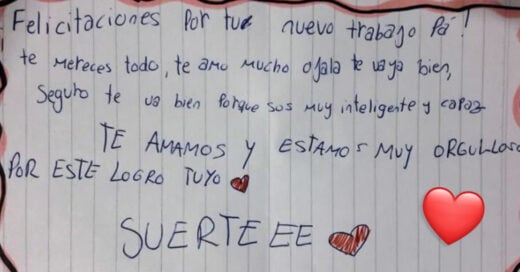 Felicitaciones Por tu nuevo trabajo Pá!
te mereces todo, te amo mucho ojala te vaya bien,
Seguro te va bien Porque sos muy inteligente y capaz
TE AMAMOS Y ESTAMOS MUY ORGULLOSO
POR ESTE LOGRO TUYO
SUERTE EE